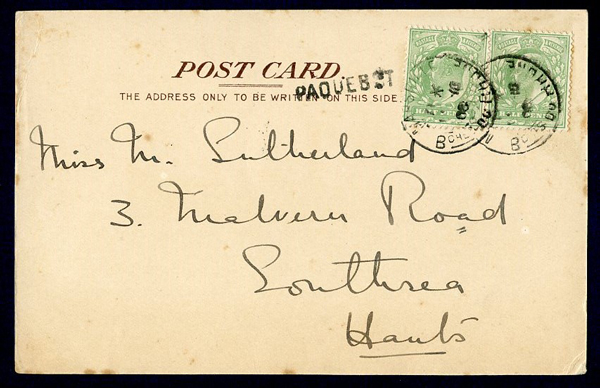 POST CARD
PAQUEBOT
THE ADDRESS ONLY TO BE WRITTEN ON THIS SIDE.
Miss M. Sutherland
3. Malvern Road
Southsea
Hants